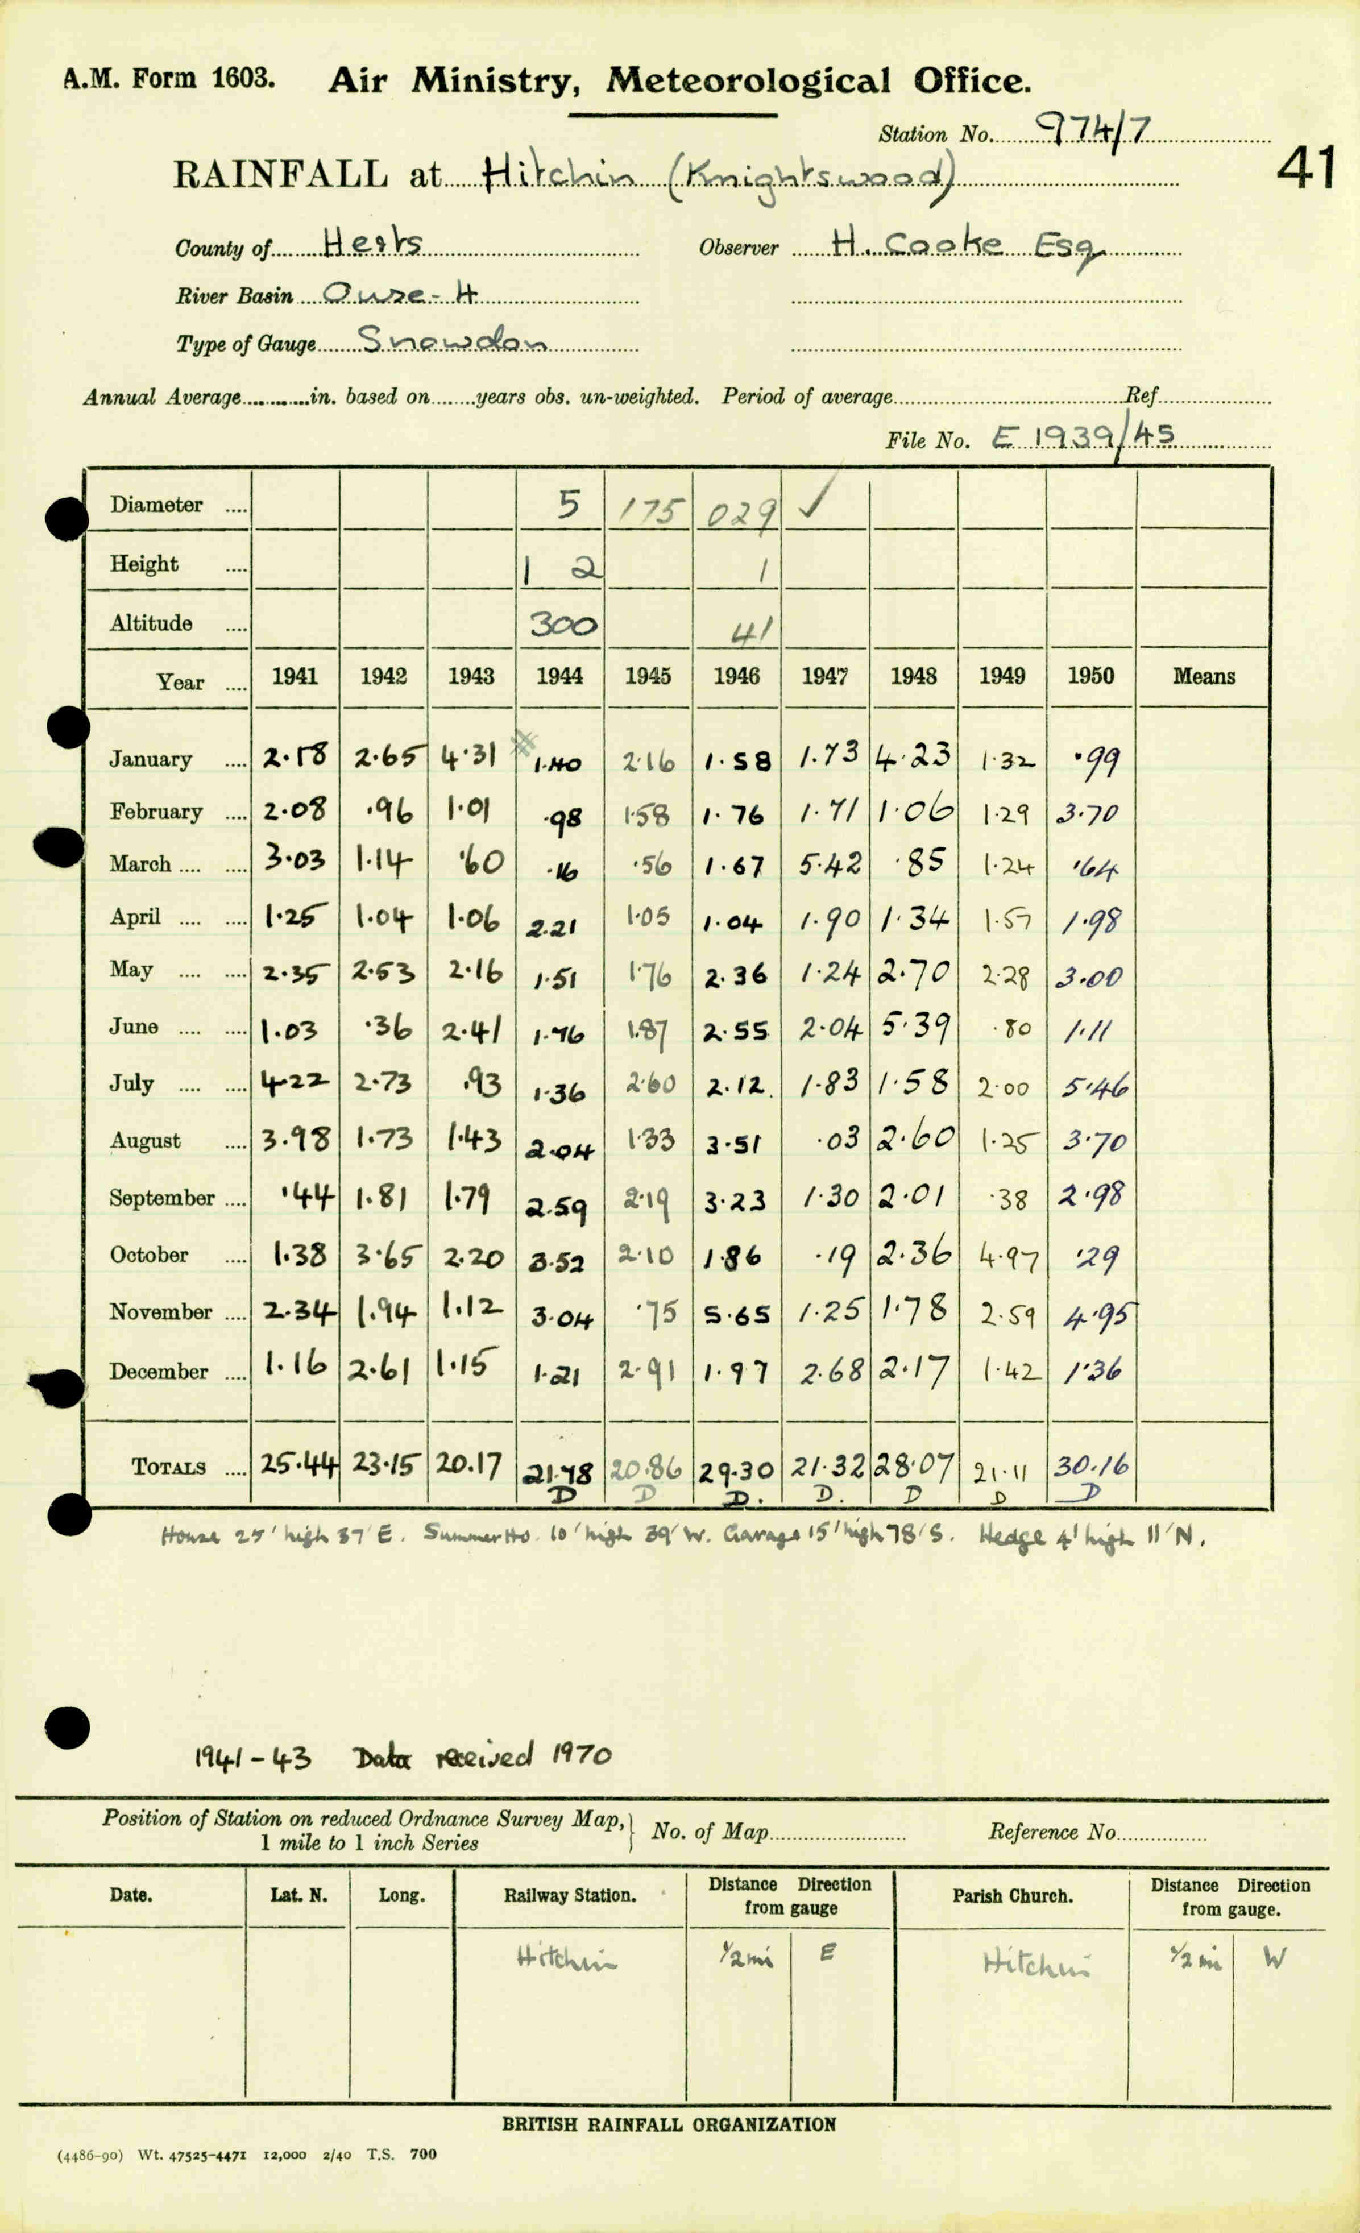 A.M. Form 1603. Air Ministry, Meteorological Office.
Station No. 974/7
41
RAINFALL at Hitchin (Knightswood)
County of Herts Observer H. Cooke Esq
River Basin Ouse - H
Type of Gauge Snowdon
Annual Average in. based on years obs. un-weighted. Period of average Ref
File No. E 1939/45
Diameter 5 175 029 ✓
Height 1 2 1
Altitude 300 41
Year 1941 1942 1943 1944 1945 1946 1947 1948 1949 1950 Means
January 2.18 2.65 4.31 # 1.40 2.16 1.58 1.73 4.23 1.32 .99
February 2.08 .96 1.01 .98 1.58 1.76 1.71 1.06 1.29 3.70
March 3.03 1.14 .60 .16 .56 1.67 5.42 .85 1.24 .64
April 1.25 1.04 1.06 2.21 1.05 1.04 1.90 1.34 1.57 1.98
May 2.35 2.53 2.16 1.51 1.76 2.36 1.24 2.70 2.28 3.00
June 1.03 .36 2.41 1.76 1.87 2.55 2.04 5.39 .80 1.11
July 4.22 2.73 .93 1.36 2.60 2.12 1.83 1.58 2.00 5.46
August 3.98 1.73 1.43 2.04 1.33 3.51 .03 2.60 1.25 3.70
September .44 1.81 1.79 2.59 2.19 3.23 1.30 2.01 .38 2.98
October 1.38 3.65 2.20 3.52 2.10 1.86 .19 2.36 4.97 .29
November 2.34 1.94 1.12 3.04 .75 5.65 1.25 1.78 2.59 4.95
December 1.16 2.61 1.15 1.21 2.91 1.97 2.68 2.17 1.42 1.36
TOTALS 25.44 23.15 20.17 21.78 20.86 29.30 21.32 28.07 21.11 30.16
D D D. D. D D D
House 25' high 37' E. Summer Ho. 10' high 39' W. Garage 15' high 78' S. Hedge 4' high 11' N.
1941-43 Data received 1970
Position of Station on reduced Ordnance Survey Map, 1 mile to 1 inch Series } No. of Map Reference No.
Date. Lat. N. Long. Railway Station. Distance Direction from gauge Parish Church. Distance Direction from gauge.
Hitchin 1/2 mi E Hitchin 1/2 mi W
BRITISH RAINFALL ORGANIZATION
(4486-90) Wt. 47525-4471 12,000 2/40 T.S. 700